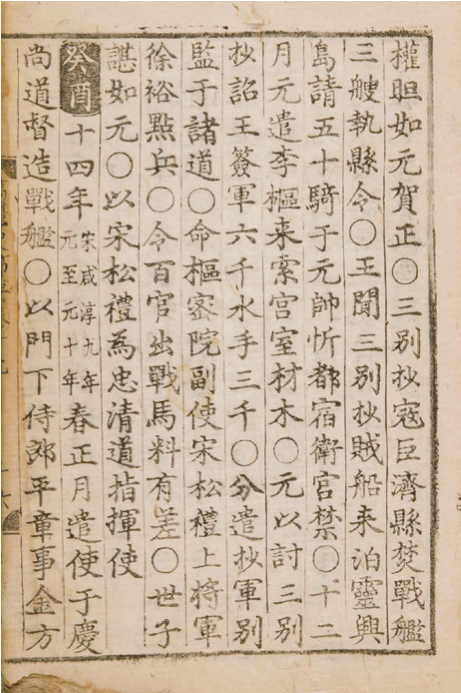 權㫜如元賀正○三別抄寇巨濟縣焚戰艦
三艘執縣令○王聞三別抄賊船来泊靈興
島請五十騎于元帥忻都宿衛宮禁○十二
月元遣李樞来索宮室材木○元以討三別
抄詔王簽軍六千水手三千○分遣抄軍別
監于諸道○命樞密院副使宋松禮上將軍
徐裕點兵○令百官出戰馬料有差○世子
諶如元○以宋松禮為忠清道指揮使
癸酉十四年宋咸淳九年元至元十年春正月遣使于慶
尚道督造戰艦○以門下侍郎平章事金方